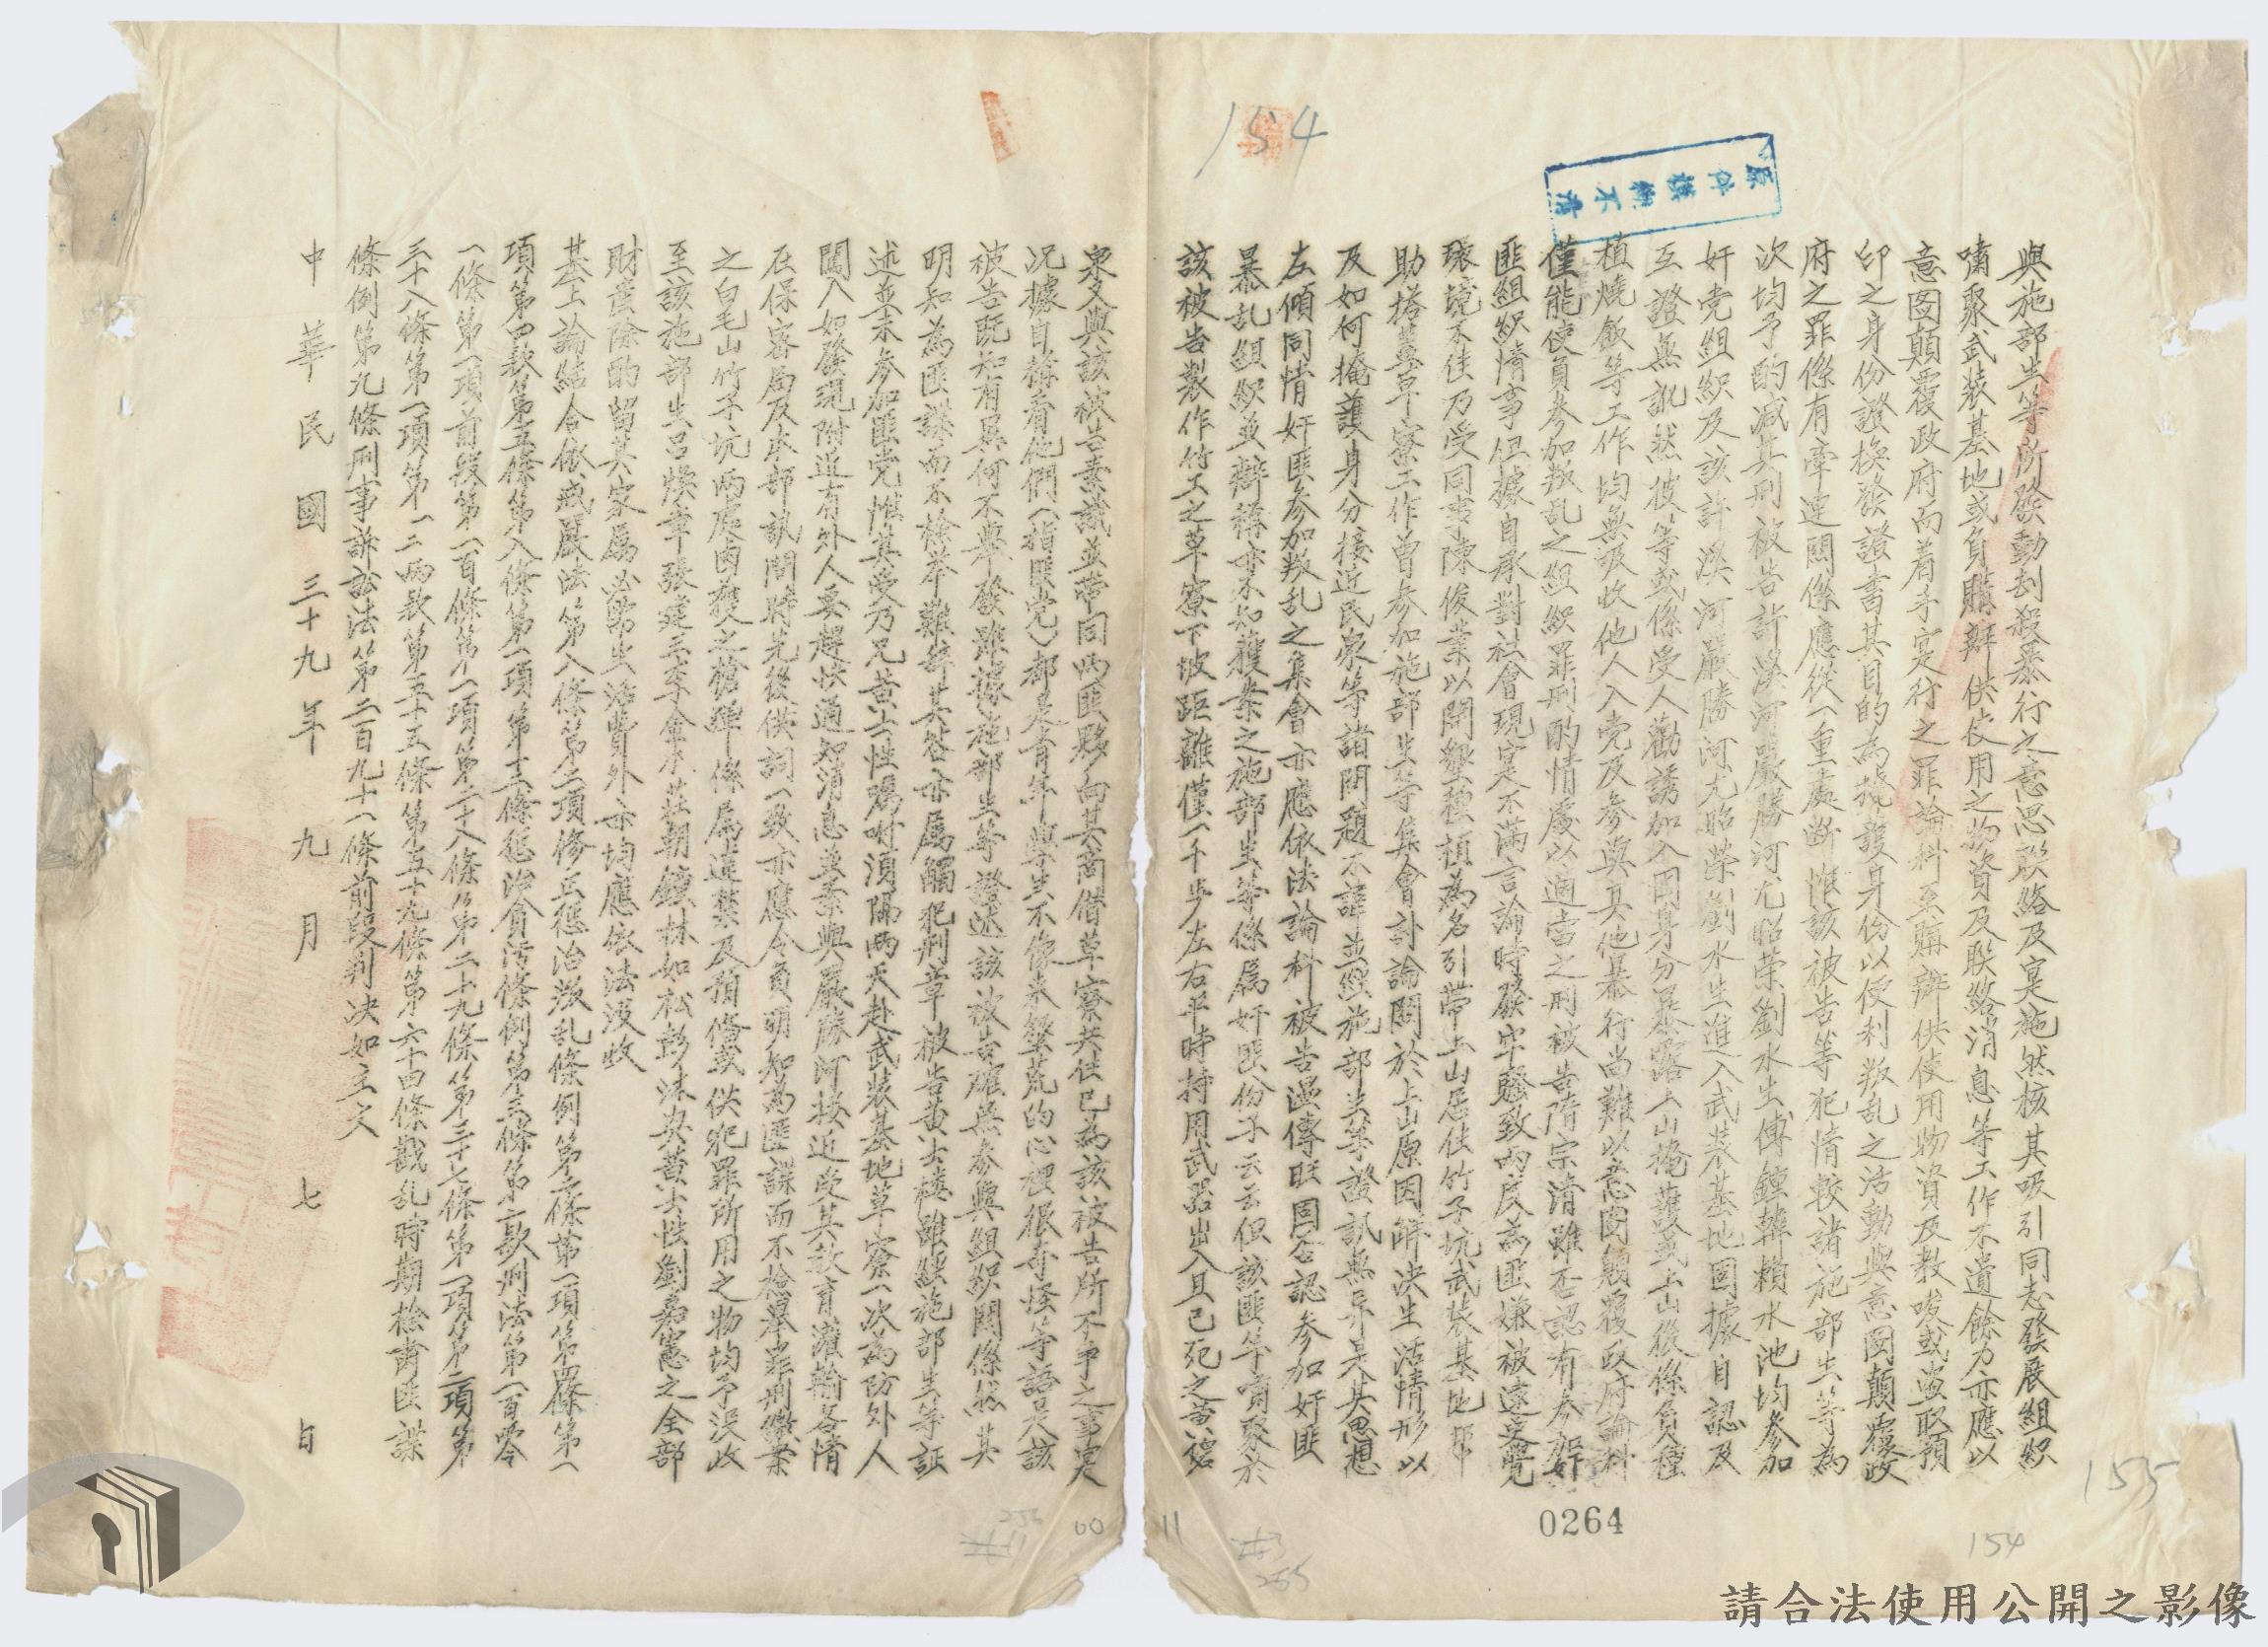 154
原件模糊不清
與施部生等所發動刦殺暴行之意思聯絡及寔施然核其吸引同志發展組織
嘯聚武裝基地或負購辦供使用之物資及联絡消息等工作不遺餘力亦應以
意图顛覆政府而着手寔行之罪論科至購辦供使用物資及教唆或盗取預
印之身份證換發證書其目的為掩護身份以便利叛乱之活動與意图顛覆政
府之罪係有牽連關係應從一重處断惟該被告等犯情較諸施部生等為
次均予酌减其刑被告許溪河嚴勝河尤昭荣劉水生傅鐘賴水池均參加
奸党組織及該許溪河嚴勝河尤昭荣劉水生進入武裝基地固據自認及
互證無訛然彼等或係受人勸誘加入因身分暴露上山掩護或上山後係負種
植燒飯等工作均無吸收他人入党及參與其他暴行尚難以意图顛覆政府論科
僅能使負參加叛乱之組織罪刑酌情處以適當之刑被告隋宗清雖否認有參與奸
匪組織情事但據自承對社會現寔不满言論時發牢騷致两度為匪嫌被逮更覺
環境不佳乃受同事陳俊業以開墾種植為名引帶上山居住竹子坑武裝基地帮
助搭蓋草寮工作曾參加施部生等集會討論関於上山原因解决生活情形以
及如何掩護身分接近民衆等諸問題不諱並經施部生等證訊無异是其思想
左傾同情奸匪參加叛乱之集會亦應依法論科被告溫傳旺固否認參加奸匪
暴乱組織並辯稱亦不知獲案之施部生等係属奸匪份子云云但該匪等嘯聚於
該被告製作竹工之草寮下坡距離僅一千步左右平時持用武器出入且已死之黄
0264
155
154
255
11
泉又與該被告素識並带同两匪夥向其商借草寮共住已為該被告所不爭之事寔
况據自稱看他們（指匪党）都是青年學生不像來墾荒的心裡很奇怪等語是該
被告既知有異何不舉發雖據施部生等證述該被告確無参與組織関係然其
明知為匪諜而不檢举難辞其咎亦属觸犯刑章被告黄士楼雖經施部生等証
述並未參加匪党惟其受乃兄黄士性嘱咐須隔两天赴武裝基地草寮一次為防外人
闖入如發現附近有外人要趕快通知消息並素與嚴勝河接近受其教育灌輸各情
在保密局及本部訊問時先後供詞一致亦應令負明知為匪諜而不檢舉罪刑繳案
之白毛山竹子坑两處卤獲之槍彈係属違禁及預備或供犯罪所用之物均予没收
至該施部生呂煥章張建三李金木莊朝鐘林如松彭沐興黄士性劉嘉憲之全部
財產除酌留其家属必需生活費外亦均應依法没收
基上論結合依戒嚴法第八條第二項修正惩治叛乱條例第二條第一項第四條第一
項第四款第五條第八條第一項第十二條惩治貪污條例第三條第六款刑法第一百零
一條第一項前段第一百條第一項第二十八條第二十九條第三十七條第一項第二項第
三十八條第一項第一二两款第五十五條第五十九條第六十四條戡乱時期檢肅匪諜
條例第九條刑事訴訟法第二百九十一條前段判决如主文
中華民國三十九年九月七日
請合法使用公開之影像